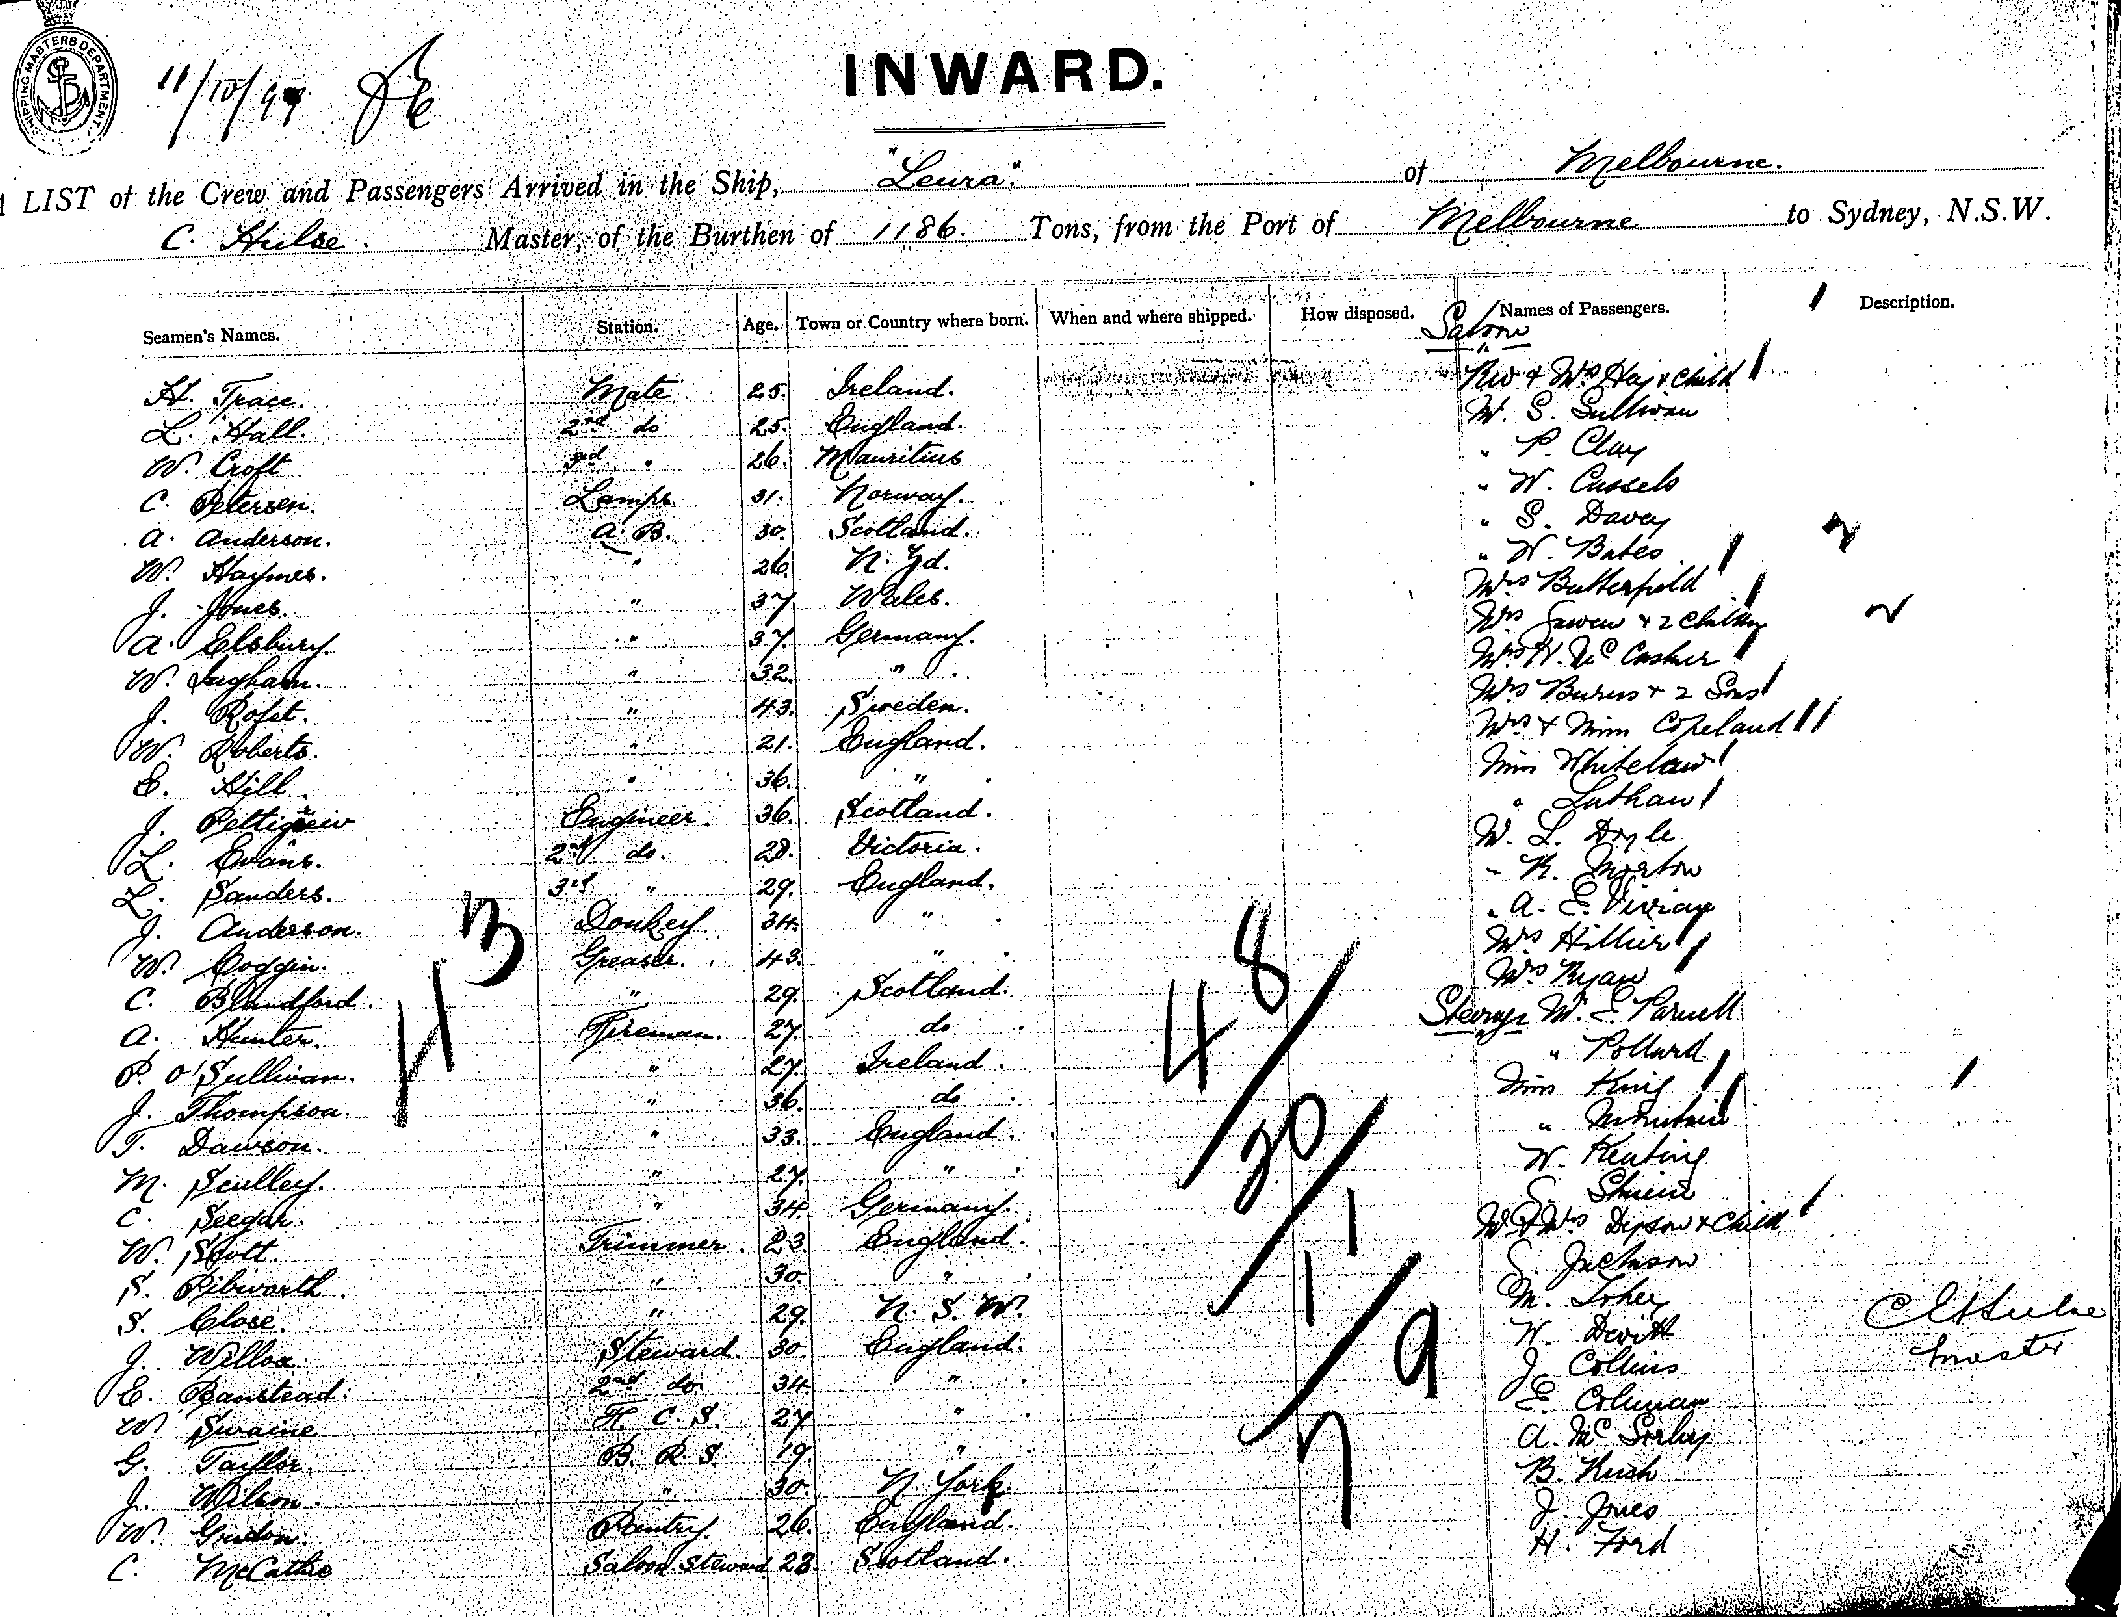 SHIPPING MASTERS DEPARTMENT.
11/10/97
INWARD.
A LIST of the Crew and Passengers Arrived in the Ship, "Leura" of Melbourne.
C. Hulse. Master, of the Burthen of 1186. Tons, from the Port of Melbourne to Sydney, N.S.W.
Seamen's Names. Station. Age. Town or Country where born. When and where shipped. How disposed. Names of Passengers. Description.
Saloon
H. Trace. Mate 25. Ireland. & Mrs Hay & child
L. Hall. 2nd do 25. England. M. S. Sullivan
W. Croft 3rd " 26. Mauritius " P. Clay
C. Petersen. Lamps 31. Norway. " W. Cassels
A. Anderson. A. B. 30. Scotland. " S. Davey
W. Haymes. " 26 N. Zd. " W. Bates
J. Jones. " 37 Wales. Mrs Butterfield
A. Elsbury. " 37. Germany. Mrs & 2 Children
W. Ingham. " 32. " Mrs H. Mc Casker
J. Rofst. " 43. Sweden. Mrs Burns & 2 Sons
W. Roberts. " 21. England. Mrs & Miss Copeland
E. Hill. " 36. " Miss Whitelaw
J. Pettigrew Engineer. 36. Scotland. " Latham
L. Evans. 2nd do. 28. Victoria. M. L. Doyle
L. Sanders. 3rd " 29. England. " R. Morton
J. Anderson. Donkey 34. " " A. E. Vivian
W. Coggin. Greaser. 43. " Mrs Hillier
C. Blandford. " 29. Scotland. Mrs Ryan
A. Hunter. Fireman. 27. do Steerage M. E. Parnell
P. O'Sullivan. " 27. Ireland. " Pollard
J. Thompson. " 36. do Miss King
T. Dawson. " 33. England. "
M. Sculley. " 27. " W. Keating
C. Seegar. " 34. Germany. S.
W. Scott. Trimmer. 23. England. M. & Mrs & Child
S. Pibworth. " 30. " S. Jackson
S. Close. " 29. N. S. W. M.
J. Willox. Steward 30. England. W. Devitt
E. Banstead. 2nd do 34 " J. Collins
W. Swaine F. C. S. 27 " E. Colman
G. Taylor. B. R. S. 19 " A. Mc Sorley
J. Wilson. " 30. N. York. B. Rush
W. Gudon. Pantry. 26. England. J. Jones
C. McCathie Saloon Steward 23. Scotland. H. Ford
43
48/30/11/9
7
C Hulse
Master